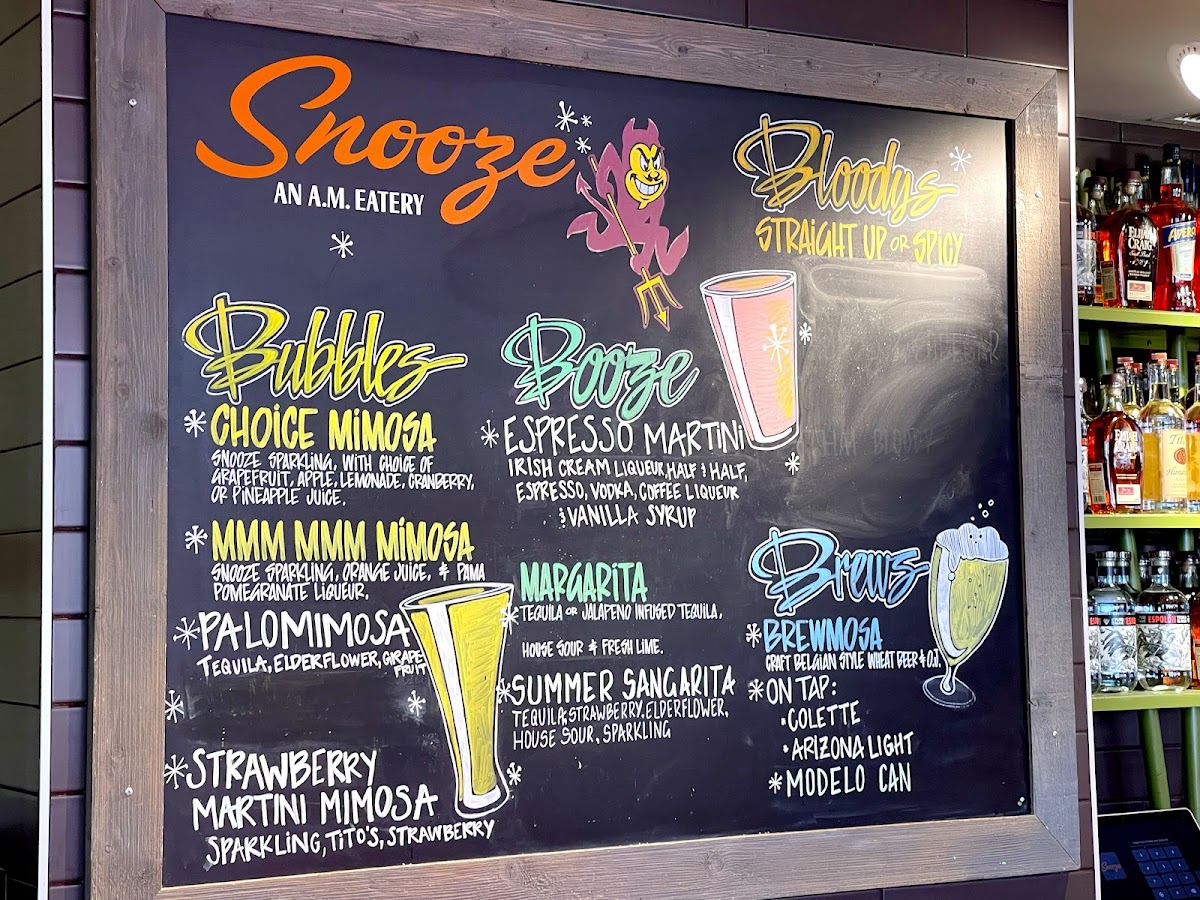 Snooze
AN A.M. EATERY
Bubbles
CHOICE MIMOSA
SNOOZE SPARKLING, WITH CHOICE OF
GRAPEFRUIT, APPLE, LEMONADE, CRANBERRY,
OR PINEAPPLE JUICE.
MMM MMM MIMOSA
SNOOZE SPARKLING, ORANGE JUICE, & PAMA
POMEGRANATE LIQUEUR.
PALOMIMOSA
TEQUILA, ELDERFLOWER, GRAPE
FRUIT
STRAWBERRY
MARTINI MIMOSA
SPARKLING, TITO'S, STRAWBERRY
Booze
ESPRESSO MARTINI
IRISH CREAM LIQUEUR, HALF & HALF,
ESPRESSO, VODKA, COFFEE LIQUEUR
& VANILLA SYRUP
MARGARITA
TEQUILA OR JALAPENO INFUSED TEQUILA,
HOUSE SOUR & FRESH LIME.
SUMMER SANGARITA
TEQUILA, STRAWBERRY, ELDERFLOWER,
HOUSE SOUR, SPARKLING
Bloodys
STRAIGHT UP OR SPICY
Brews
BREWMOSA
CRAFT BELGIAN STYLE WHEAT BEER & O.J.
ON TAP:
• COLETTE
• ARIZONA LIGHT
MODELO CAN
ELIJAH
CRAIG
APEROL
ESPOLÒN